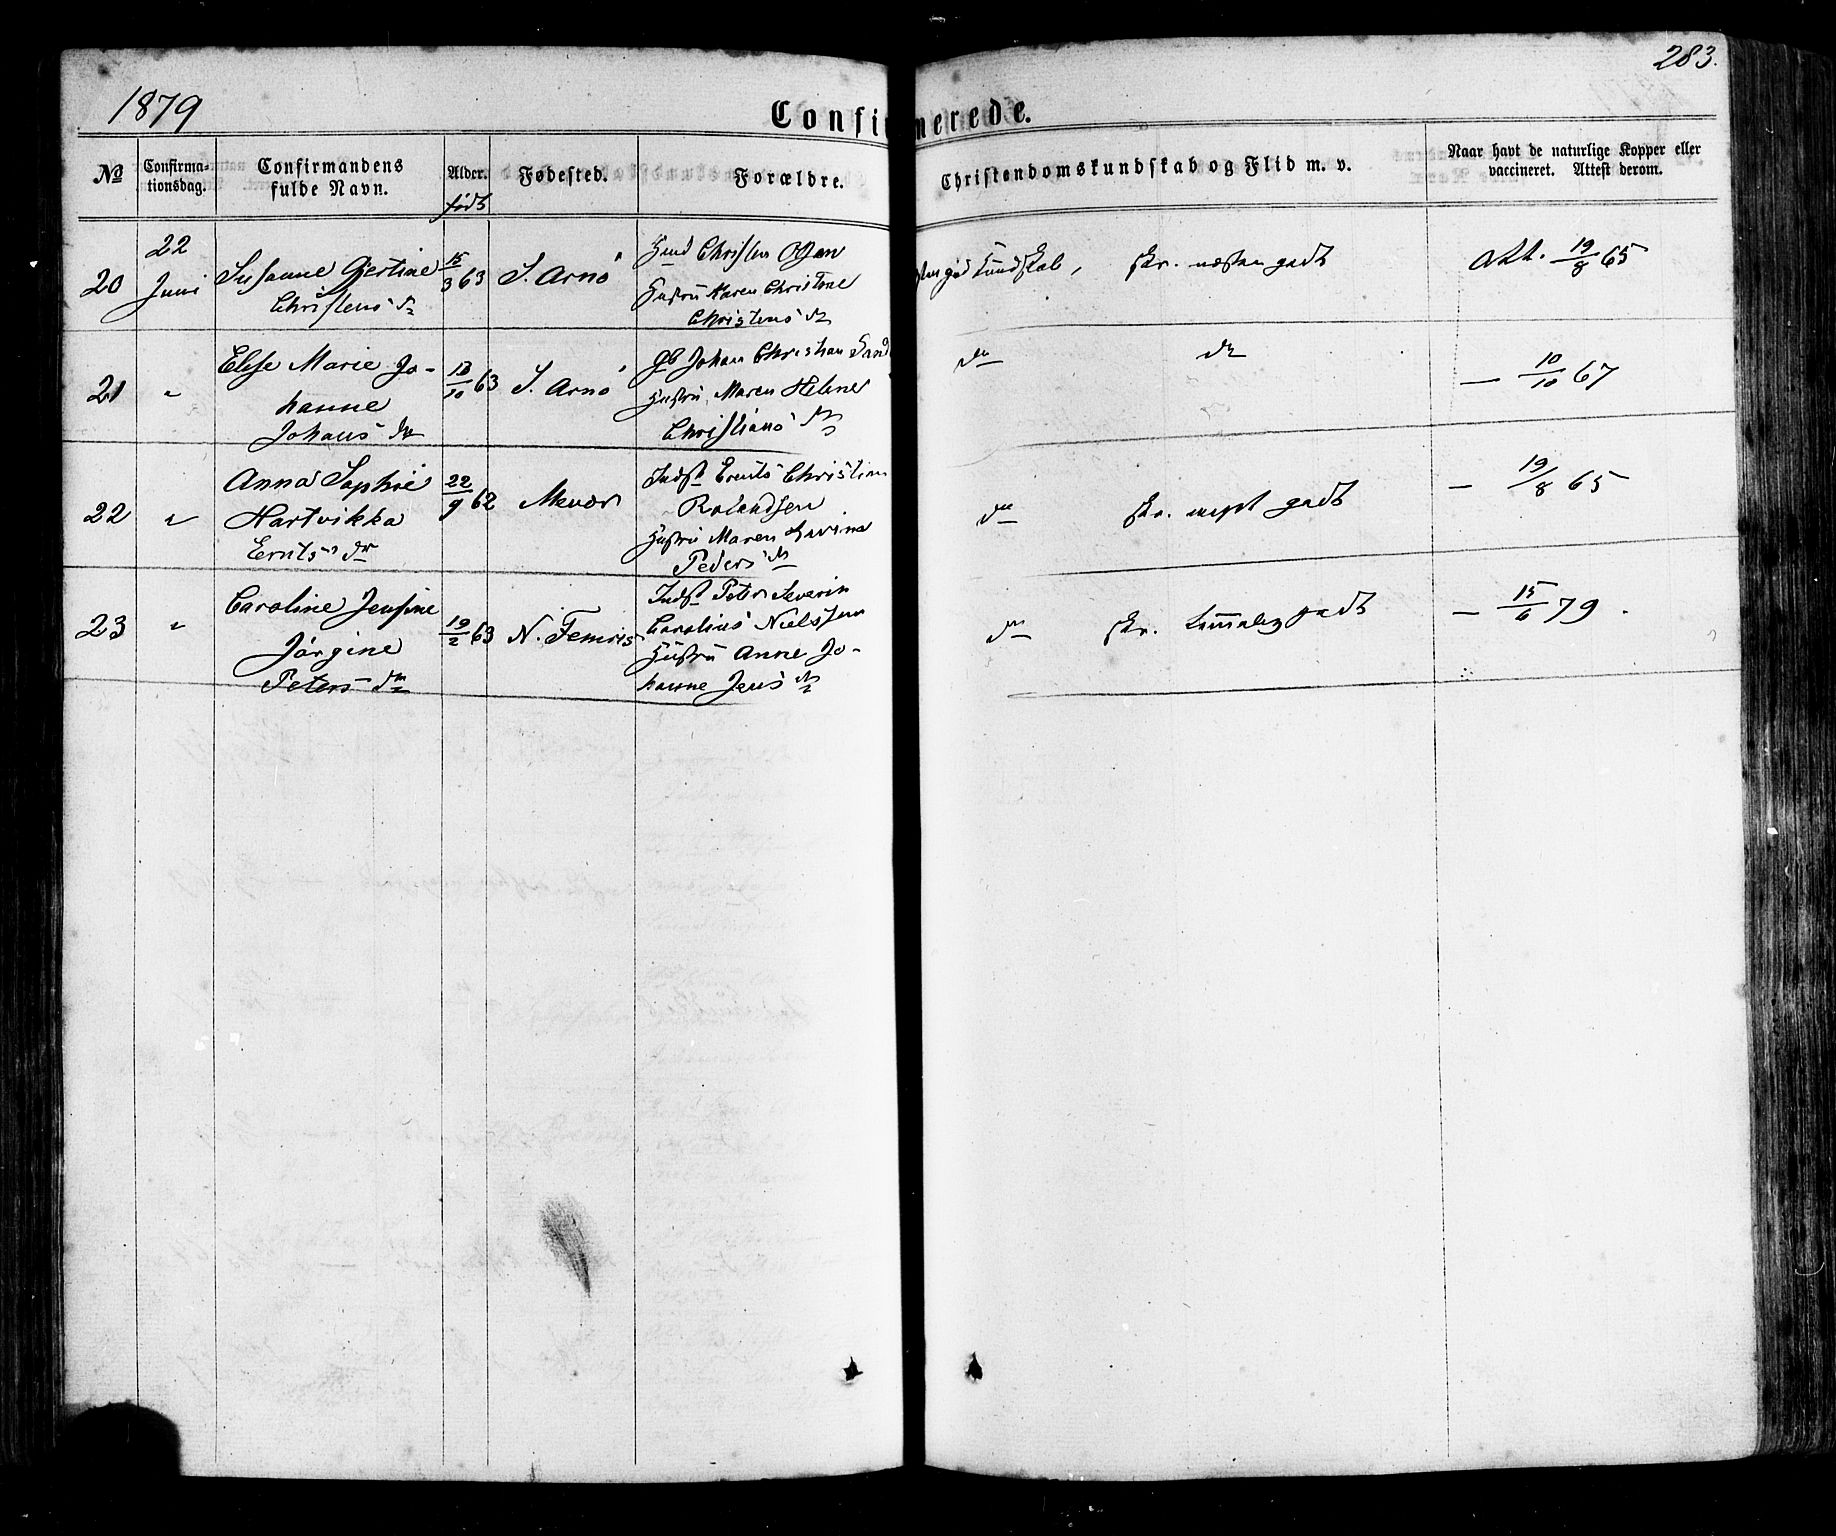 283.
1879
Confirmerede.
No
Confirma-
tionsdag.
Confirmandens
fulde Navn.
Alder.
født
Fødested.
Forældre.
Christendomskundskab og Flid m. v.
Naar havt de naturlige Kopper eller
vaccineret. Attest derom.
20
22
Juni
Susanne Gjertine
Christens dr
15/3 63
S. Arnö
Christen Olsen
Hustru Karen Christine
Christens dr
god Kundskab, skr. næsten godt
att. 19/8 65
21
"
Elise Marie Jo-
hanne
Johans dr
13/10 63
S. Arnö
Gb Johan Christian
Hustru Maren Helene
Christians dr
do
do
— 10/10 67
22
"
Anna Sophie
Hartvikka
Ernts dr
22/9 62
Mevær
Indst Ernts Christian
Rolandsen
Hustru Maren
Peders dr
do
skr. meget godt
— 19/8 65
23
"
Caroline Jensine
Jörgine
Peters dr
19/2 63
N. Femris
Indst Peter Severin
Carolius Nielsen
Hustru Anne Jo-
hanne Jens dr
do
skr. temmelig godt
— 15/6 79.